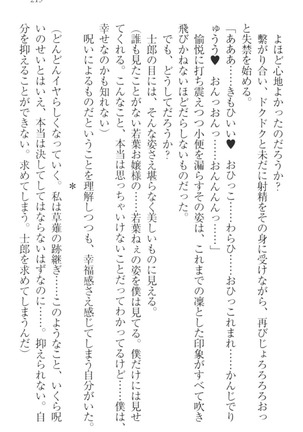 よほど心地よかったのだろうか?
繋がり合い、ドクドクと未だに射精をその身に受けながら、再びじょろろろろおっ
と失禁を始める。
「あああ……きもひいい♥ おひっこ……わらひ……おひっここれまれ……かんじでり
ゅうう♥ おんっおんっ……おんんんんっ……♥」
愉悦に打ち震えつつ小便を漏らすその姿は、これまでの凜とした印象がすべて吹き
飛びかねないほどだらしないものだった。
でも、どうしてだろうか?
士郎の目には、そんな姿さえ堪らなく美しいものに見える。
(誰も見たことがない若葉お嬢様の……若葉ねぇの姿を僕は見てる。僕だけには見せ
てくれる。こんなこと、本当は思っちゃいけないことだってわかってるけど……僕は、
幸せなのかも知れない)
呪いによるものだということを理解しつつも、幸福感さえ感じてしまう自分がいた。
*
(どんどんイヤらしくなっていく。私は草薙の跡継ぎ……このようなこと、いくら呪
いのせいとはいえ、本当は決してしてはならないはずなのに……。抑えられない。自
分を抑えることができない。求めてしまう。士郎を求めてしまうんだ)